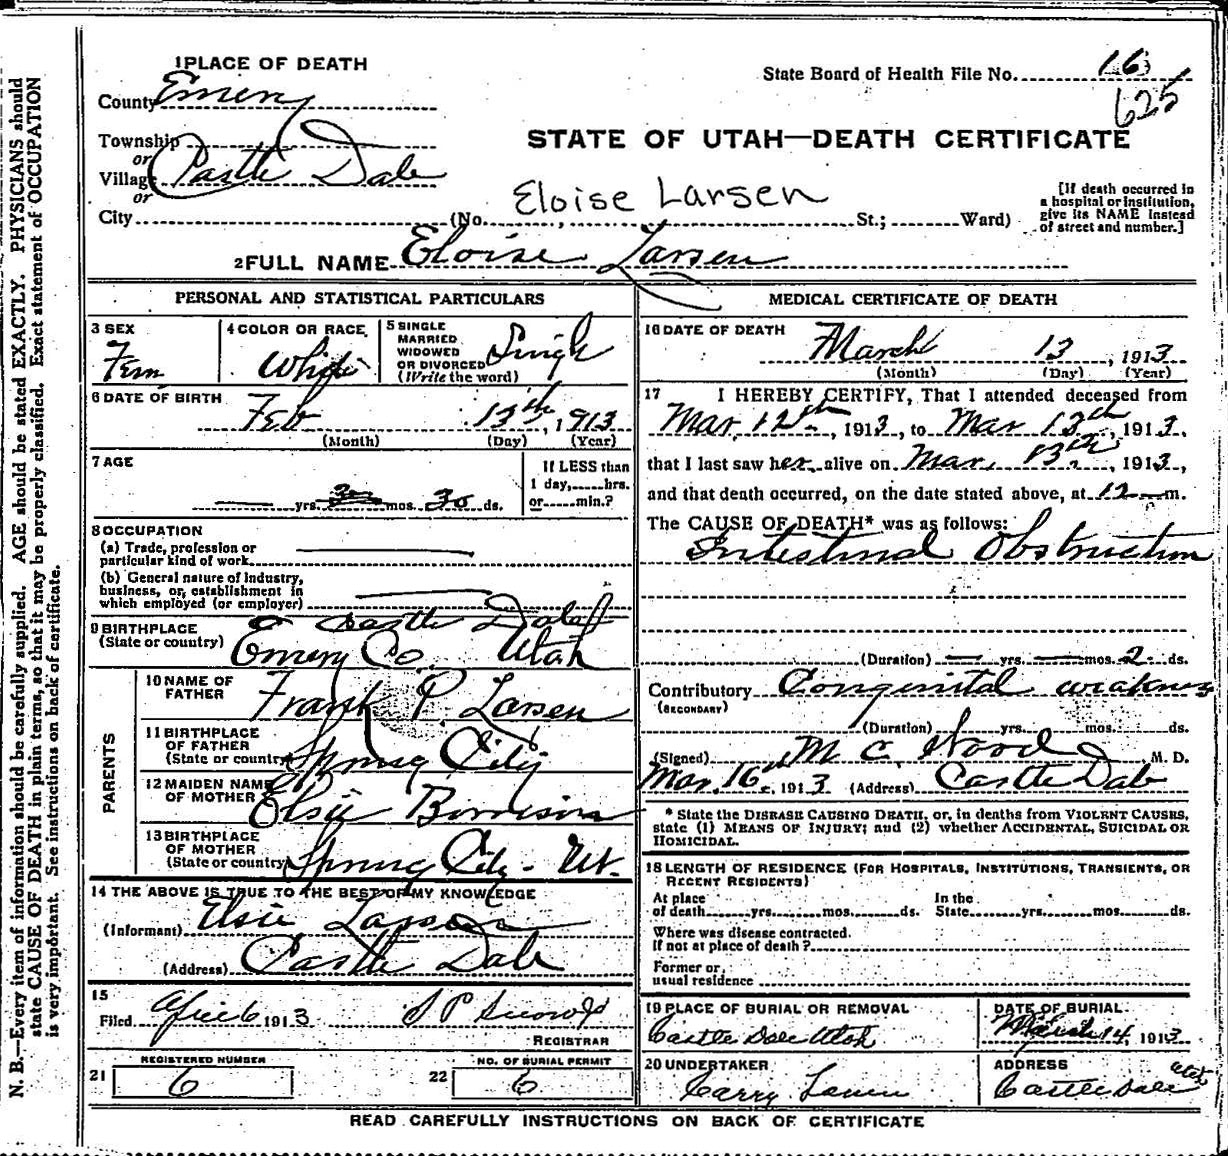 1 PLACE OF DEATH
State Board of Health File No. 16
625
County Emery
STATE OF UTAH—DEATH CERTIFICATE
Township
or
Village Castle Dale
or
Eloise Larsen
City (No. St.; Ward)
[If death occurred in
a hospital or institution,
give its NAME instead
of street and number.]
2 FULL NAME Eloise Larsen
PERSONAL AND STATISTICAL PARTICULARS
3 SEX
Fem
4 COLOR OR RACE
White
5 SINGLE
MARRIED
WIDOWED
OR DIVORCED
(Write the word)
Single
6 DATE OF BIRTH
Feb 13th, 1913
(Month) (Day) (Year)
7 AGE
yrs. mos. 30 ds.
If LESS than
1 day, hrs.
or min.?
8 OCCUPATION
(a) Trade, profession or
particular kind of work
(b) General nature of industry,
business, or establishment in
which employed (or employer)
9 BIRTHPLACE
(State or country)
Castle Dale
Emery Co Utah
PARENTS
10 NAME OF
FATHER
Frank P. Larsen
11 BIRTHPLACE
OF FATHER
(State or country)
Spring City
12 MAIDEN NAME
OF MOTHER
Elsie
13 BIRTHPLACE
OF MOTHER
(State or country)
Spring City - Ut.
14 THE ABOVE IS TRUE TO THE BEST OF MY KNOWLEDGE
(Informant) Elsie Larsen
(Address) Castle Dale
15
Filed April 6 1913
REGISTRAR
REGISTERED NUMBER
21 6
NO. OF BURIAL PERMIT
22 6
MEDICAL CERTIFICATE OF DEATH
16 DATE OF DEATH
March 13, 1913
(Month) (Day) (Year)
17 I HEREBY CERTIFY, That I attended deceased from
Mar. 12th, 1913, to Mar 13th, 1913,
that I last saw her alive on Mar. 13th, 1913,
and that death occurred, on the date stated above, at 12 m.
The CAUSE OF DEATH* was as follows:
Intestinal Obstruction
(Duration) yrs. mos. 2 ds.
Contributory Congenital weakness
(SECONDARY)
(Duration) yrs. mos. ds.
(Signed) M. C. Wood M. D.
Mar. 16th, 1913 (Address) Castle Dale
* State the DISEASE CAUSING DEATH, or, in deaths from VIOLENT CAUSES,
state (1) MEANS OF INJURY; and (2) whether ACCIDENTAL, SUICIDAL OR
HOMICIDAL.
18 LENGTH OF RESIDENCE (FOR HOSPITALS, INSTITUTIONS, TRANSIENTS, OR
RECENT RESIDENTS)
At place
of death yrs. mos. ds.
In the
State yrs. mos. ds.
Where was disease contracted.
If not at place of death?
Former or
usual residence
19 PLACE OF BURIAL OR REMOVAL
Castle Dale Utah
DATE OF BURIAL
March 14, 1913
20 UNDERTAKER
ADDRESS
Castle Dale Utah
READ CAREFULLY INSTRUCTIONS ON BACK OF CERTIFICATE
N. B.—Every item of information should be carefully supplied. AGE should be stated EXACTLY. PHYSICIANS should
state CAUSE OF DEATH in plain terms, so that it may be properly classified. Exact statement of OCCUPATION
is very important. See instructions on back of certificate.